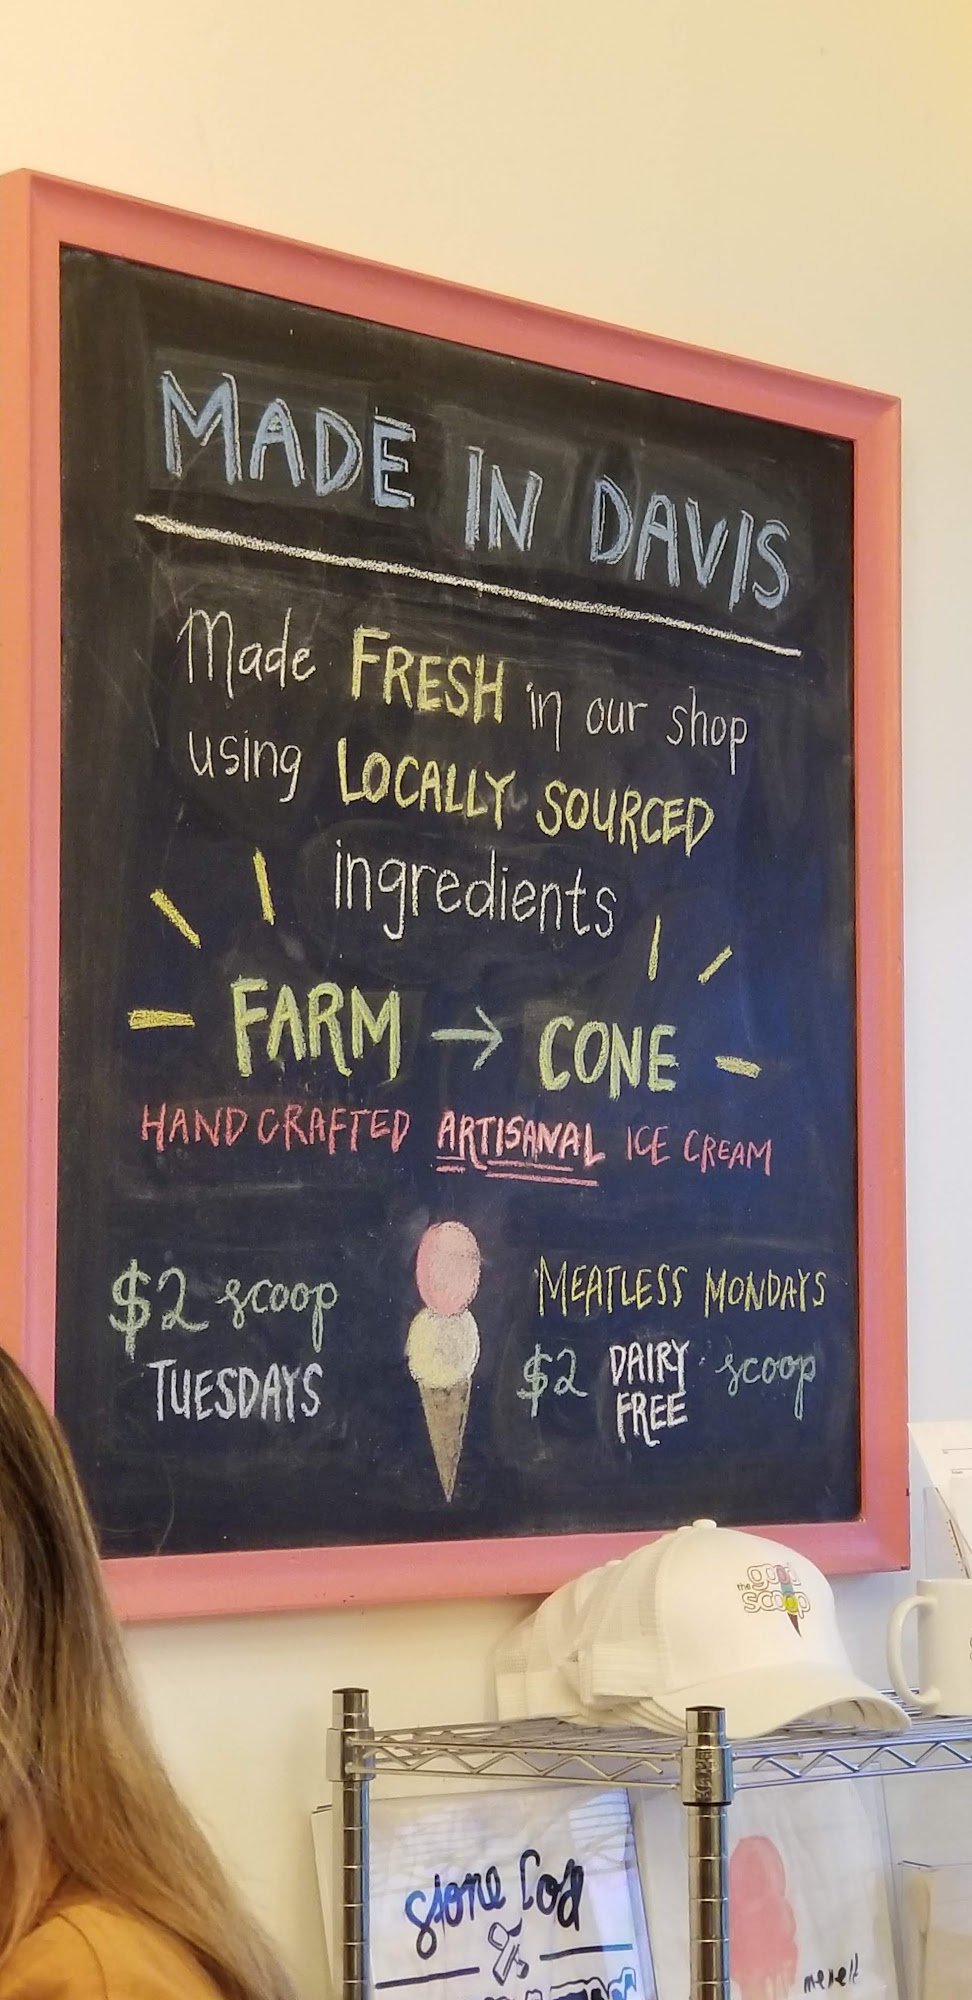 MADE IN DAVIS
Made FRESH in our shop
using LOCALLY SOURCED
ingredients
FARM → CONE
HANDCRAFTED ARTISANAL ICE CREAM
$2 scoop
TUESDAYS
MEATLESS MONDAYS
$2 DAIRY FREE scoop
the good
scoop
Stone